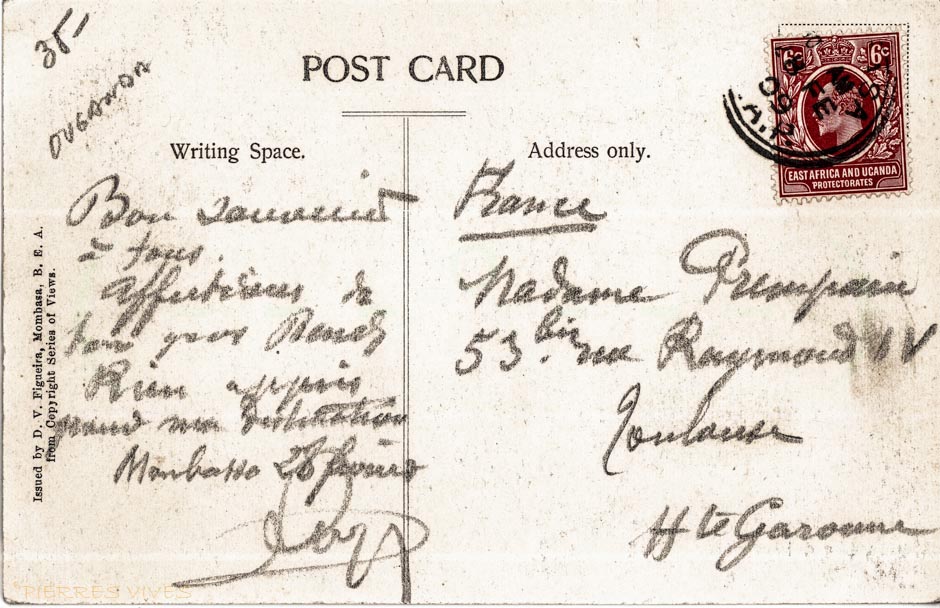 35-
OUGANDA
POST CARD
Writing Space.
Address only.
6c 6c
EAST AFRICA AND UGANDA
PROTECTORATES
Bon souvenir
à tous
Affections de
ton gros
Rien appris
ma destination
Monbassa 26 février
France
Madame Prempain
53 bis rue Raymond IV
Toulouse
Hte Garonne
Issued by D. V. Figueira, Mombasa, B. E. A.
from Copyright Series of Views.
PIERRES VIVES